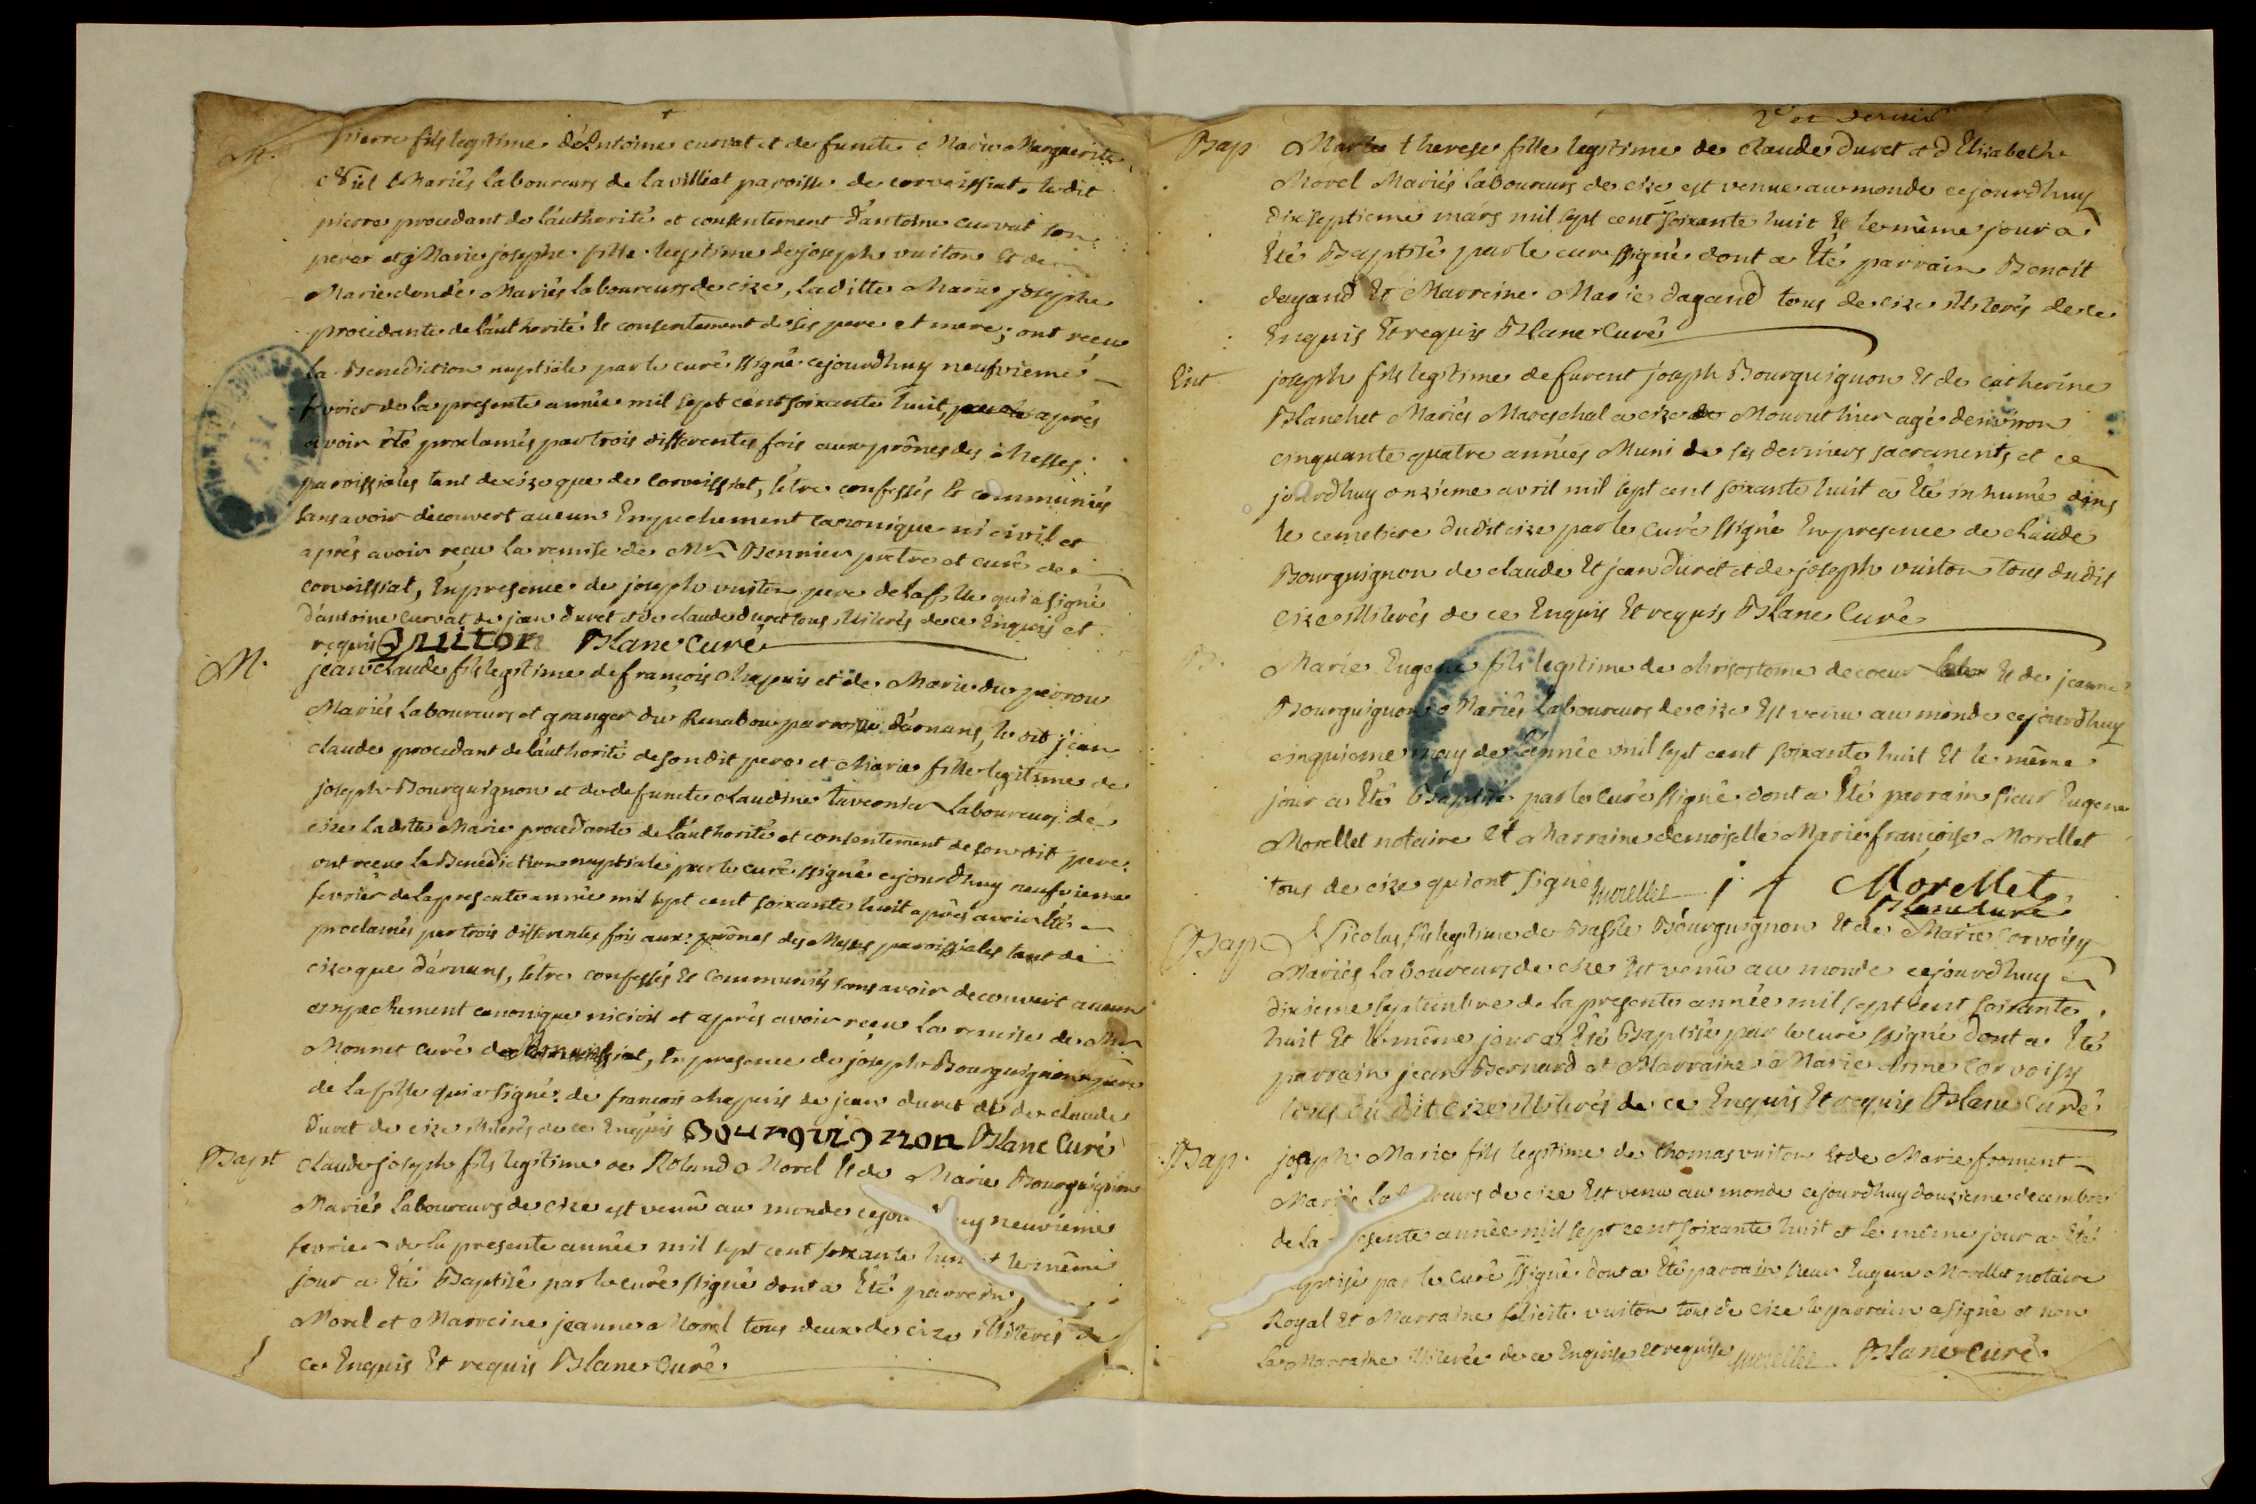 M. Pierre fils legitime d'Antoine curvat et de functe Marie Marguerite
Mariés laboureurs de la villiat paroisse de corveissiat, ledit
pierre procedant de l'authorité et consentement d'antoine curvat son
pere et Marie josephe fille legitime de joseph vuiton Et de
Marie dondé Mariés laboureurs de cize, laditte Marie josephe
procedante de l'authorité Et consentement de ses pere et mere; ont receu
la Benediction nuptiale par le curé ssigné cejourdhuy neufvieme
fevrier de la presente année mil sept cent soixante huit, après
avoir été proclamés par trois differentes fois aux prônes des Messes
paroissiales tant de cize que de corveissiat, s'être confessés Et communiés
sans avoir découvert aucun Empechement canonique ni civil et
après avoir reçu la remise de Mr Bonnier pretre et curé de
corveissiat, En presence de joseph vuiton pere de la fille qui a signé
d'antoine curvat de jean duret et de claude duret tous illiterés de ce Enquis et
requis Vuiton Blanc Curé
M. jean claude fils legitime de françois chapuis et de Marie du perron
Mariés laboureurs et granger du paroisse d'arnans, le dit jean
claude procedant de l'authorité de son dit pere et Marie fille legitime de
joseph Bourguignon et de defuncte claudine tavernier laboureurs de
cize ladite Marie procedante de l'authorité et consentement de son dit pere
ont receu la Benediction nuptiale par le curé ssigné cejourdhuy neufvieme
fevrier de la presente année mil sept cent soixante huit après avoir Eté
proclamés par trois differentes fois aux prônes des Messes paroissiales tant de
cize que d'arnans, s'être confessés Et communiés sans avoir decouvert aucun
empechement canonique ni civil et après avoir reçu la remise de Mr
Monnet curé de, En presence de joseph Bourguignon pere
de la fille qui a signé de françois chapuis de jean duret et de claude
duret de cize illiterés de ce Enquis Bourguignon Blanc Curé
Bapt claude joseph fils legitime de Roland Morel Et de Marie Bourguignon
Mariés laboureurs de cize est venu au monde neuvieme
fevrier de la presente année mil sept cent soixante et le même
jour a Eté Baptisé par le curé ssigné dont a Eté parrain
Morel et Marreine jeanne Morel tous deux de cize illiterés de
ce Enquis Et requis Blanc Curé
2e et dernier
Bap Marie therese fille legitime de claude duret et d'Elizabeth
Morel Mariés laboureurs de cize est venue au monde cejourdhuy
dixseptieme mars mil sept cent soixante huit Et le même jour a
Eté Baptisé par le curé ssigné dont a Eté parrain Benoit
dagand Et Marreine Marie dagand tous de cize illiterés de ce
Enquis Et requis Blanc Curé
Ent joseph fils legitime de furent joseph Bourguignon Et de catherine
Blanchet Mariés Mareschal a cize agé d'environ
cinquante quatre années Muni de ses derniers sacrements et ce
jourdhuy onzieme avril mil sept cent soixante huit a Eté inhumé dans
le cemetiere dudit cize par le curé ssigné En presence de claude
Bourguignon de claude Et jean duret et de joseph vuiton tous dudit
cize illiterés de ce Enquis Et requis Blanc Curé
B. Marie Eugene fils legitime de chrisostome decoeur Et de jeanne
Bourguignon Mariés laboureurs de cize Est venu au monde cejourdhuy
cinquieme may de l'année mil sept cent soixante huit Et le même
jour a Eté Baptisé par le curé ssigné dont a Eté parrain sieur Eugene
Morellet notaire Et Marraine demoiselle Marie françoise Morellet
tous de cize qui ont signé morellet j f Morellet
Blanc curé
Bap Nicolas fils legitime de Basile Bourguignon Et de Marie Corvoisy
Mariés laboureurs de cize Est venu au monde cejourdhuy
dixieme septembre de la presente année mil sept cent soixante
huit Et le même jour a Eté Baptisé par le curé ssigné dont a Eté
parrain jean Bernard et Marraine Marie Anne Corvoisy
tous du dit cize illiterés de ce Enquis Et requis Blanc Curé
Bap. joseph Marie fils legitime de thomas vuiton Et de Marie froment
Mariés de cize Est venu au monde cejourdhuy douzieme decembre
de la année mil sept cent soixante huit et le même jour a Eté
par le curé ssigné dont a Eté parrain sieur Eugene Morellet notaire
Royal Et Marraine felicité vuiton tous de cize le parrain a signé et non
la Marraine illiterée de ce Enquise et requise morellet Blanc Curé